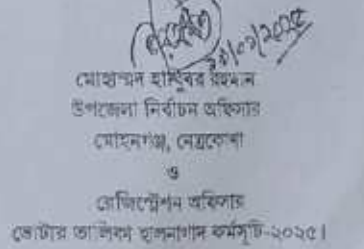 মোহাম্মদ হাবিবুর রহমান
উপজেলা নির্বাচন অফিসার
মোহনগঞ্জ, নেত্রকোণা
ও
রেজিস্ট্রেশন অফিসার
ভোটার তালিকা হালনাগাদ কর্মসূচি-২০২৫।